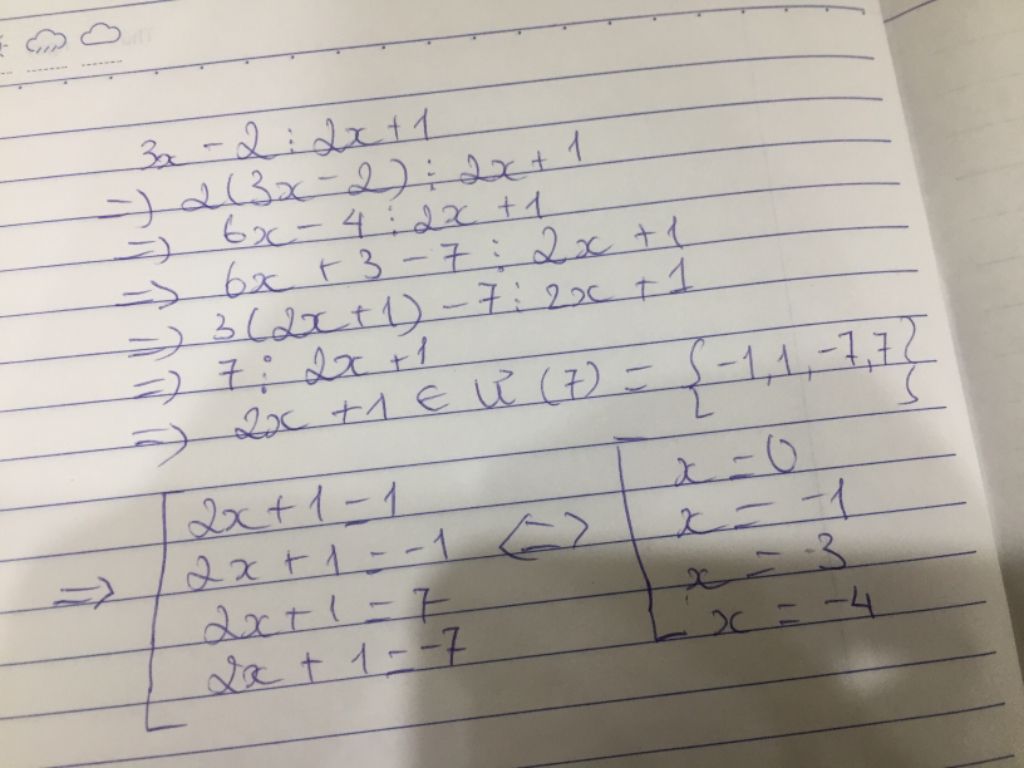 3x - 2 ⋮ 2x + 1
=) 2(3x - 2) ⋮ 2x + 1
=) 6x - 4 ⋮ 2x + 1
=> 6x + 3 - 7 ⋮ 2x + 1
=) 3(2x + 1) - 7 ⋮ 2x + 1
=) 7 ⋮ 2x + 1
=) 2x + 1 ∈ Ư (7) = {-1, 1, -7, 7}
=> [ 2x + 1 = 1
2x + 1 = -1
2x + 1 = 7
2x + 1 = -7
<=> [ x = 0
x = -1
x = 3
x = -4